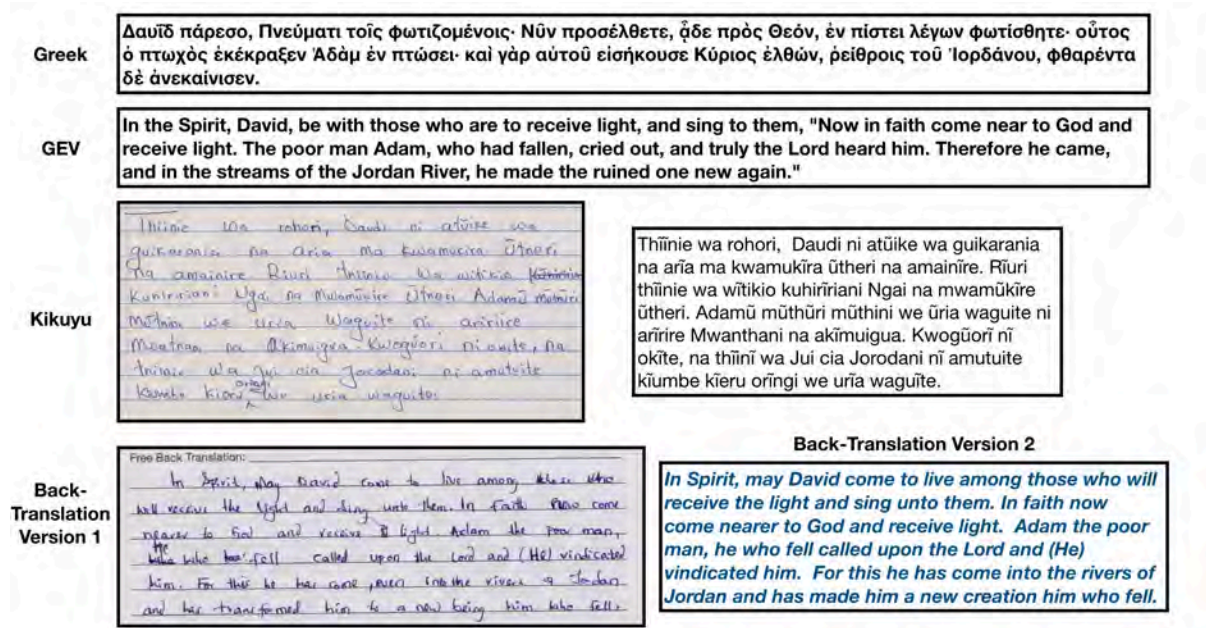 Greek
Δαυῒδ πάρεσο, Πνεύματι τοῖς φωτιζομένοις· Νῦν προσέλθετε, ᾆδε πρὸς Θεόν, ἐν πίστει λέγων φωτίσθητε· οὗτος
ὁ πτωχὸς ἐκέκραξεν Ἀδὰμ ἐν πτώσει· καὶ γὰρ αὐτοῦ εἰσήκουσε Κύριος ἐλθών, ῥείθροις τοῦ Ἰορδάνου, φθαρέντα
δὲ ἀνεκαίνισεν.
GEV
In the Spirit, David, be with those who are to receive light, and sing to them, "Now in faith come near to God and
receive light. The poor man Adam, who had fallen, cried out, and truly the Lord heard him. Therefore he came,
and in the streams of the Jordan River, he made the ruined one new again."
Kikuyu
Thiinie wa rohori, Daudi ni atũike wa
guikarania na aria ma kwamukira Ũtheri
na amainire Riuri thiinie wa witikio
Kuhiririani Ngai na Mwamũkire Ũtheri Adamũ mũthũri
Mũthini we uria Waguite ni aririire
na Akimuigua. Kwogũori ni okite, na
thiinie wa Jui cia Jorodani ni amutuite
Kiumbe Kieru oringi we uria waguite.
Thĩĩnie wa rohori, Daudi ni atũike wa guikarania
na arĩa ma kwamukĩra ũtheri na amainĩre. Rĩuri
thĩĩnie wa wĩtikio kuhirĩriani Ngai na mwamũkĩre
ũtheri. Adamũ mũthũri mũthini we ũria waguite ni
arĩrire Mwanthani na akĩmuigua. Kwogũorĩ nĩ
okĩte, na thĩĩnĩ wa Jui cia Jorodani nĩ amutuite
kĩumbe kĩeru orĩngi we urĩa waguĩte.
Back-
Translation
Version 1
Free Back Translation:
In Spirit, may David come to live among those who
will receive the light and sing unto them. In faith now come
nearer to God and receive light. Adam the poor man,
He who fell called upon the Lord and (He) vindicated
him. For this he has come, even into the rivers of Jordan
and has transformed him to a new being him who fell.
Back-Translation Version 2
In Spirit, may David come to live among those who will
receive the light and sing unto them. In faith now
come nearer to God and receive light. Adam the poor
man, he who fell called upon the Lord and (He)
vindicated him. For this he has come into the rivers of
Jordan and has made him a new creation him who fell.